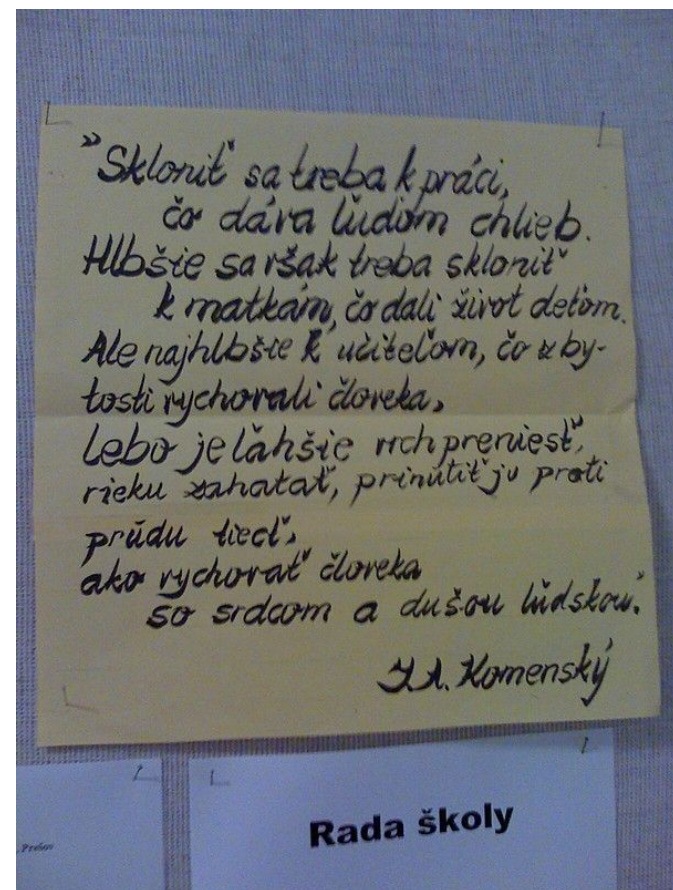 "Skloniť sa treba k práci,
čo dáva ľuďom chlieb.
Hlbšie sa však treba skloniť
k matkám, čo dali život deťom.
Ale najhlbšie k učiteľom, čo z by-
tosti vychovali človeka,
lebo je ľahšie vrch preniesť,
rieku zahatať, prinútiť ju proti
prúdu tiecť,
ako vychovať človeka
so srdcom a dušou ľudskou."
J. A. Komenský
Rada školy
, Prešov